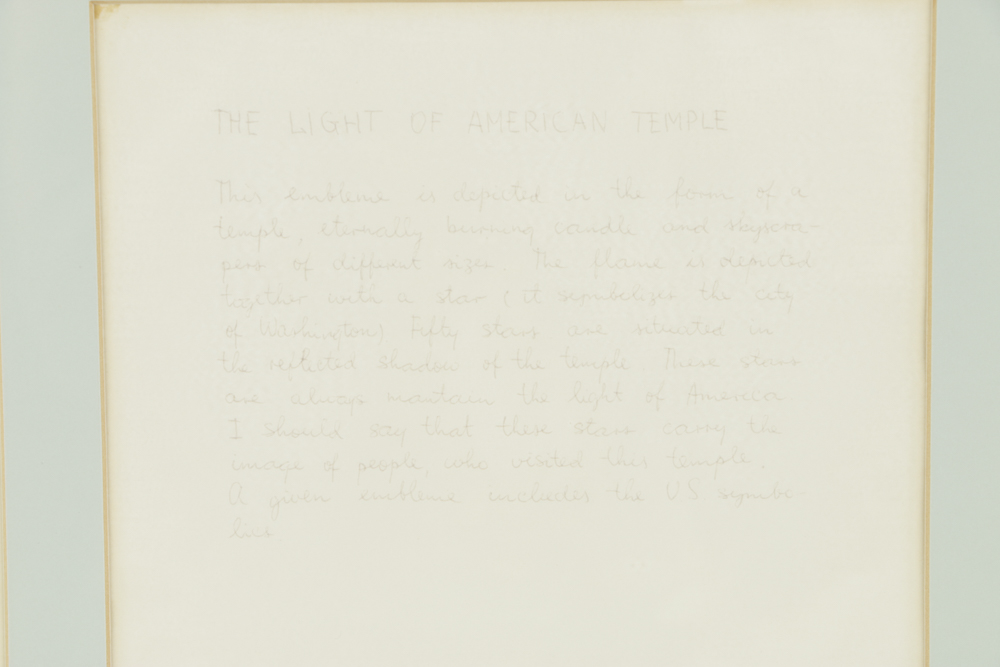 THE LIGHT OF AMERICAN TEMPLE
This embleme is depicted in the form of a
temple, eternally burning candle and skyscra-
pers of different sizes. The flame is depicted
together with a star (it symbolizes the city
of Washington) Fifty stars are situated in
the reflected shadow of the temple. These stars
are always mantain the light of America
I should say that these stars carry the
image of people, who visited this temple.
A given embleme includes the US symbo-